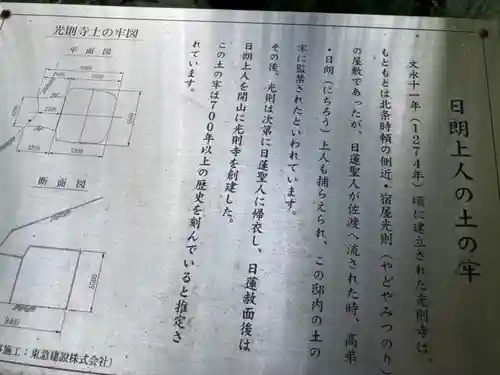 日朗上人の土の牢
文永十一年(1274年)頃に建立された光則寺は、
もともとは北条時頼の側近・宿屋光則(やどやみつのり)
の屋敷であったが、日蓮聖人が佐渡へ流された時、高弟
・日朗(にちろう)上人も捕らえられ、この邸内の土の
牢に監禁されたといわれています。
その後、光則は次第に日蓮聖人に帰衣し、日蓮赦面後は
日朗上人を開山に光則寺を創建した。
この土の牢は700年以上の歴史を刻んでいると推定さ
れています。
光則寺土の牢図
平面図
断面図
施工:東急建設株式会社)